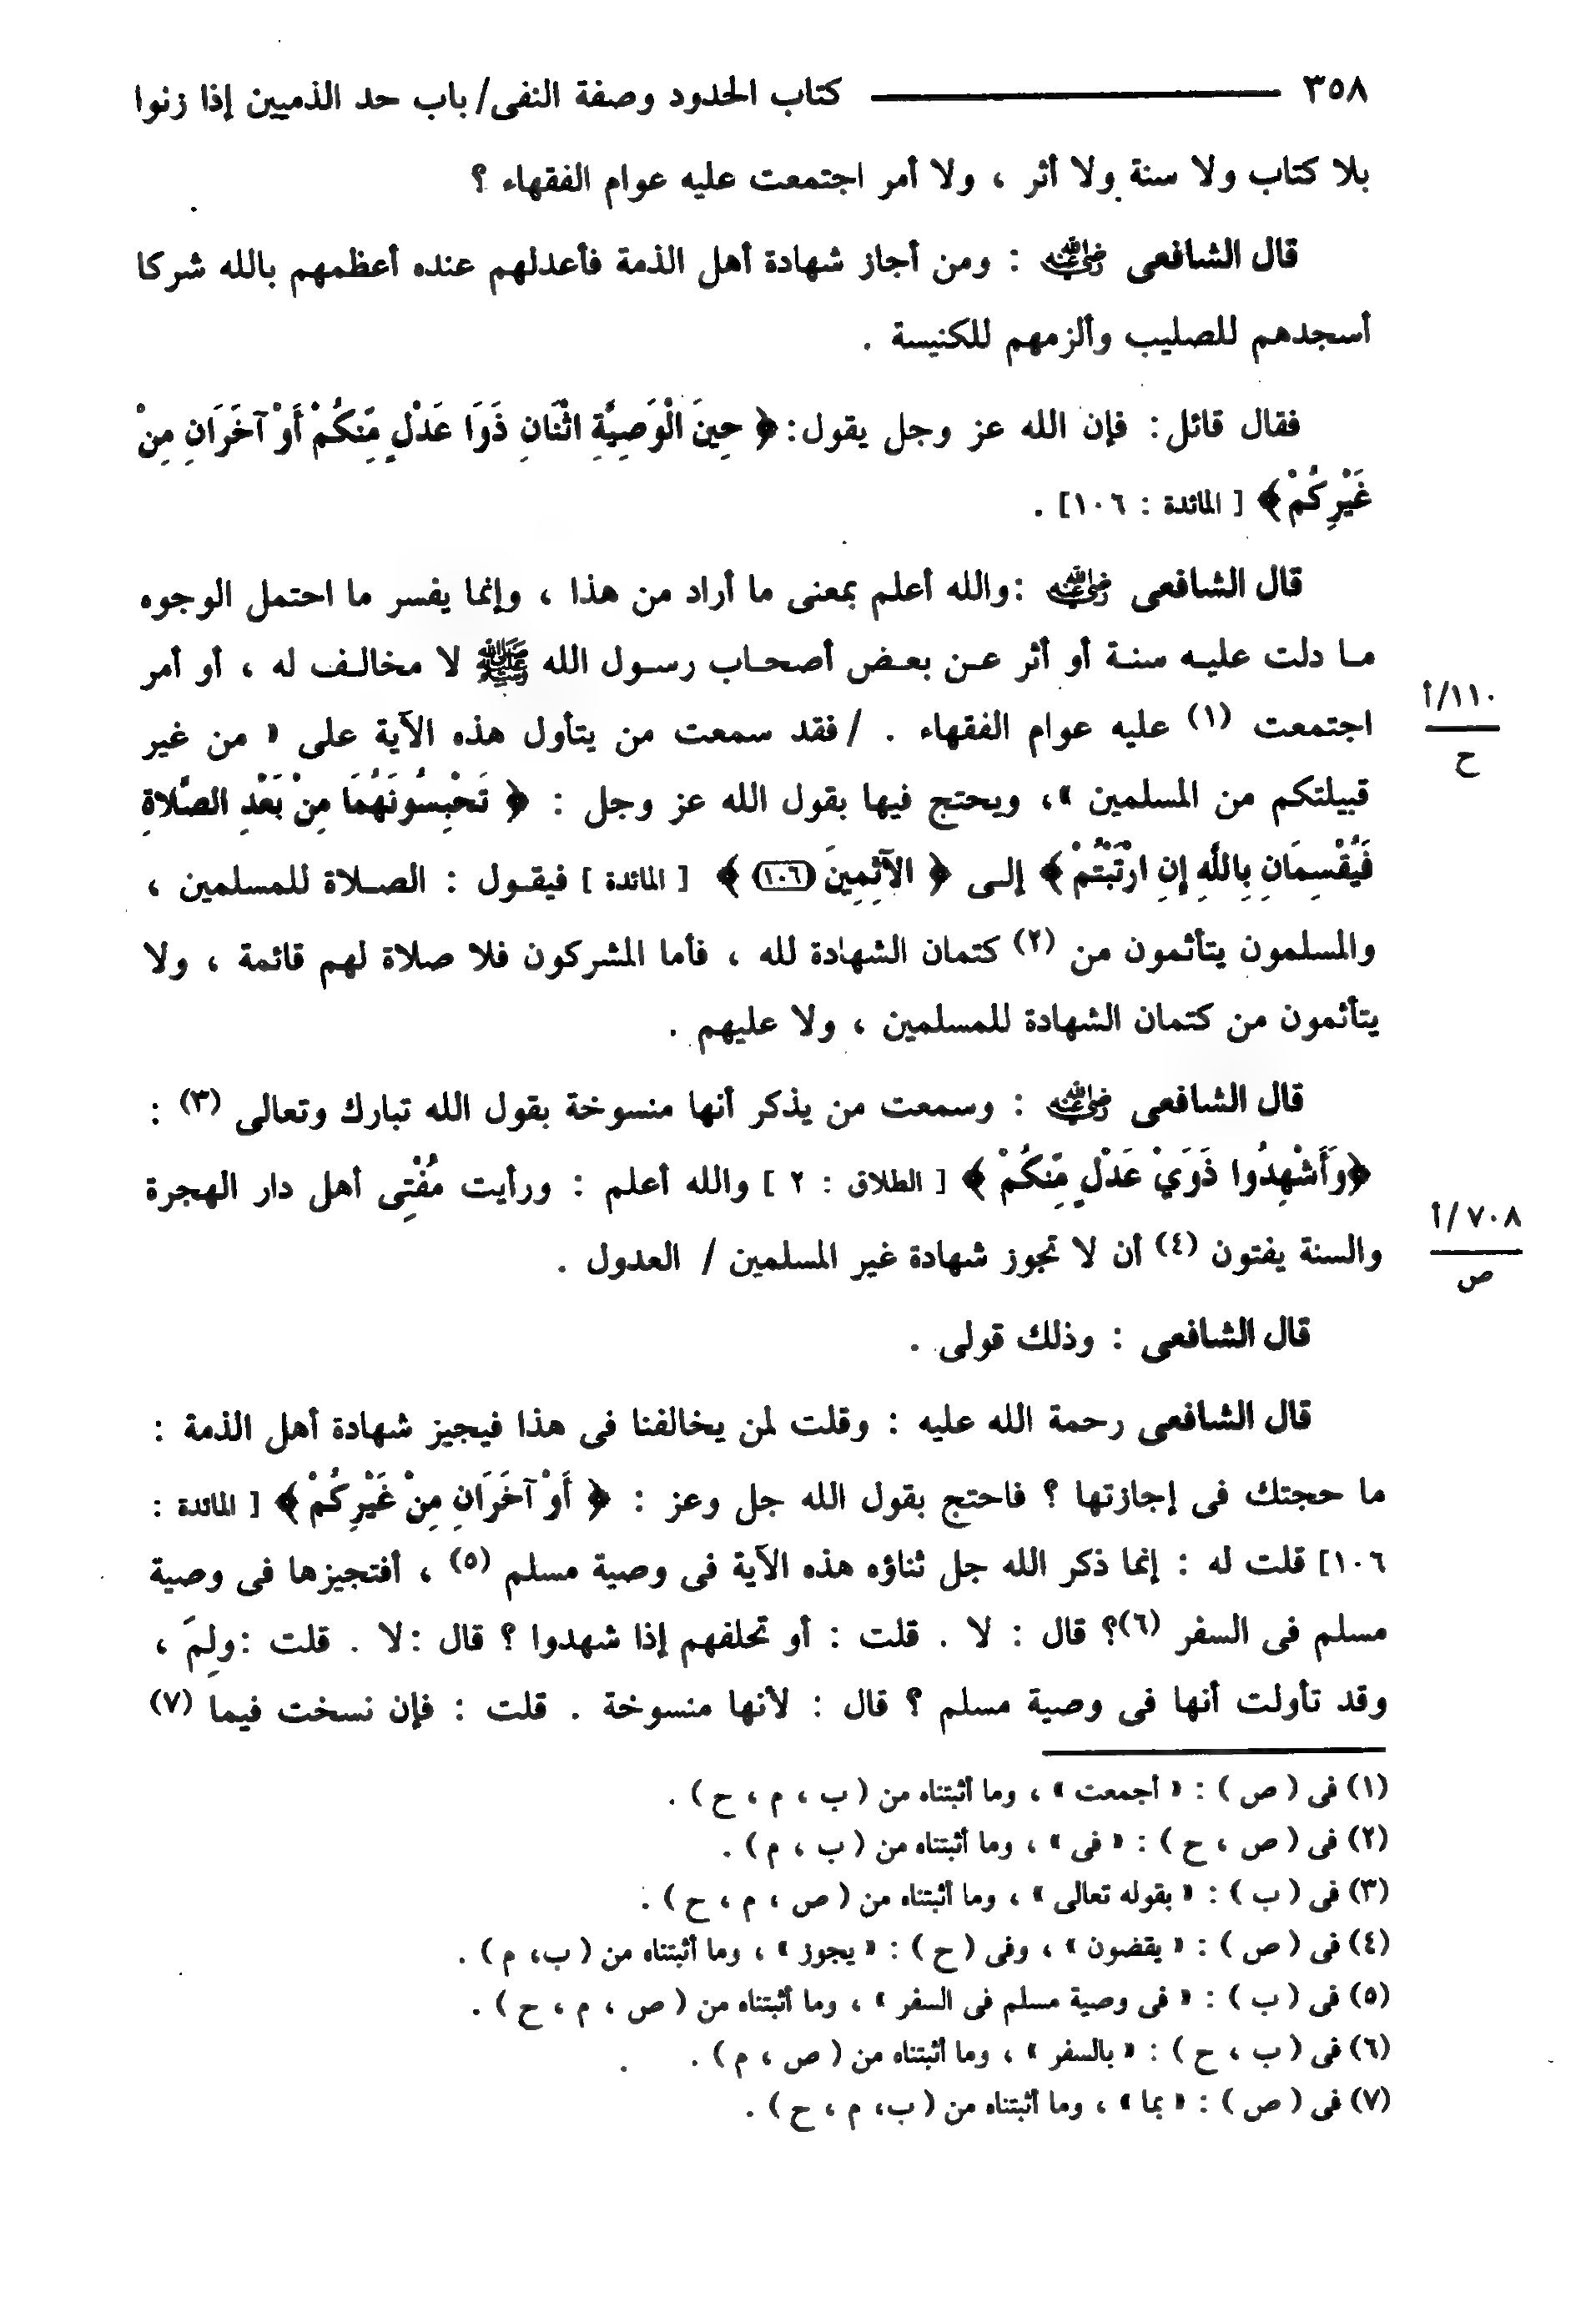 ٣٥٨ كتاب الحدود وصفة النفى/ باب حد الذميين إذا زنوا
بلا كتاب ولا سنة ولا أثر ، ولا أمر اجتمعت عليه عوام الفقهاء ؟
قال الشافعى رضي الله عنه : ومن أجاز شهادة أهل الذمة فأعدلهم عنده أعظمهم بالله شركا
أسجدهم للصليب وألزمهم للكنيسة .
فقال قائل : فإن الله عز وجل يقول : ﴿ حِينَ الْوَصِيَّةِ اثْنَانِ ذَوَا عَدْلٍ مِّنكُمْ أَوْ آخَرَانِ مِنْ
غَيْرِكُمْ ﴾ [ المائدة : ١٠٦] .
قال الشافعى رضي الله عنه :والله أعلم بمعنى ما أراد من هذا ، وإنما يفسر ما احتمل الوجوه
مـا دلت عليـه سنـة أو أثر عـن بعـض أصحـاب رسـول الله ﷺ لا مخالـف له ، أو أمر
١١٠/أ
اجتمعت (١) عليه عوام الفقهاء . / فقد سمعت من يتأول هذه الآية على « من غير
ح
قبيلتكم من المسلمين »، ويحتج فيها بقول الله عز وجل : ﴿ تَحْبِسُونَهُمَا مِنْ بَعْدِ الصَّلاةِ
فَيُقْسِمَانِ بِاللَّهِ إِنِ ارْتَبْتُمْ ﴾ إلـى ﴿ الآثِمِينَ (١٠٦) ﴾ [ المائدة ] فيقـول : الصـلاة للمسلمين ،
والمسلمون يتأثمون من (٢) كتمان الشهادة لله ، فأما المشركون فلا صلاة لهم قائمة ، ولا
يتأثمون من كتمان الشهادة للمسلمين ، ولا عليهم .
قال الشافعى رضي الله عنه : وسمعت من يذكر أنها منسوخة بقول الله تبارك وتعالى (٣) :
﴿وَأَشْهِدُوا ذَوَيْ عَدْلٍ مِّنكُمْ ﴾ [ الطلاق : ٢ ] والله أعلم : ورأيت مُفْتِى أهل دار الهجرة
٧٠٨/أ
والسنة يفتون (٤) أن لا تجوز شهادة غير المسلمين / العدول .
ص
قال الشافعى : وذلك قولى .
قال الشافعى رحمة الله عليه : وقلت لمن يخالفنا فى هذا فيجيز شهادة أهل الذمة :
ما حجتك فى إجازتها ؟ فاحتج بقول الله جل وعز : ﴿ أَوْ آخَرَانِ مِنْ غَيْرِكُمْ ﴾ [ المائدة :
١٠٦] قلت له : إنما ذكر الله جل ثناؤه هذه الآية فى وصية مسلم (٥) ، أفتجيزها فى وصية
مسلم فى السفر (٦)؟ قال : لا . قلت : أو تحلفهم إذا شهدوا ؟ قال :لا . قلت :ولِمَ ،
وقد تأولت أنها فى وصية مسلم ؟ قال : لأنها منسوخة . قلت : فإن نسخت فيما (٧)
(١) فى ( ص ) : « أجمعت » ، وما أثبتناه من ( ب ، م ، ح ) .
(٢) فى ( ص ، ح ) : « فى » ، وما أثبتناه من ( ب ، م ) .
(٣) فى ( ب ) : « بقوله تعالى » ، وما أثبتناه من ( ص ، م ، ح ) .
(٤) فى ( ص ) : « يقضون » ، وفى ( ح ) : « يجوز » ، وما أثبتناه من ( ب، م ) .
(٥) فى ( ب ) : « فى وصية مسلم فى السفر » ، وما أثبتناه من ( ص ، م ، ح ) .
(٦) فى ( ب ، ح ) : « بالسفر » ، وما أثبتناه من ( ص ، م ) .
(٧) فى ( ص ) : « بما » ، وما أثبتناه من ( ب، م ، ح ) .